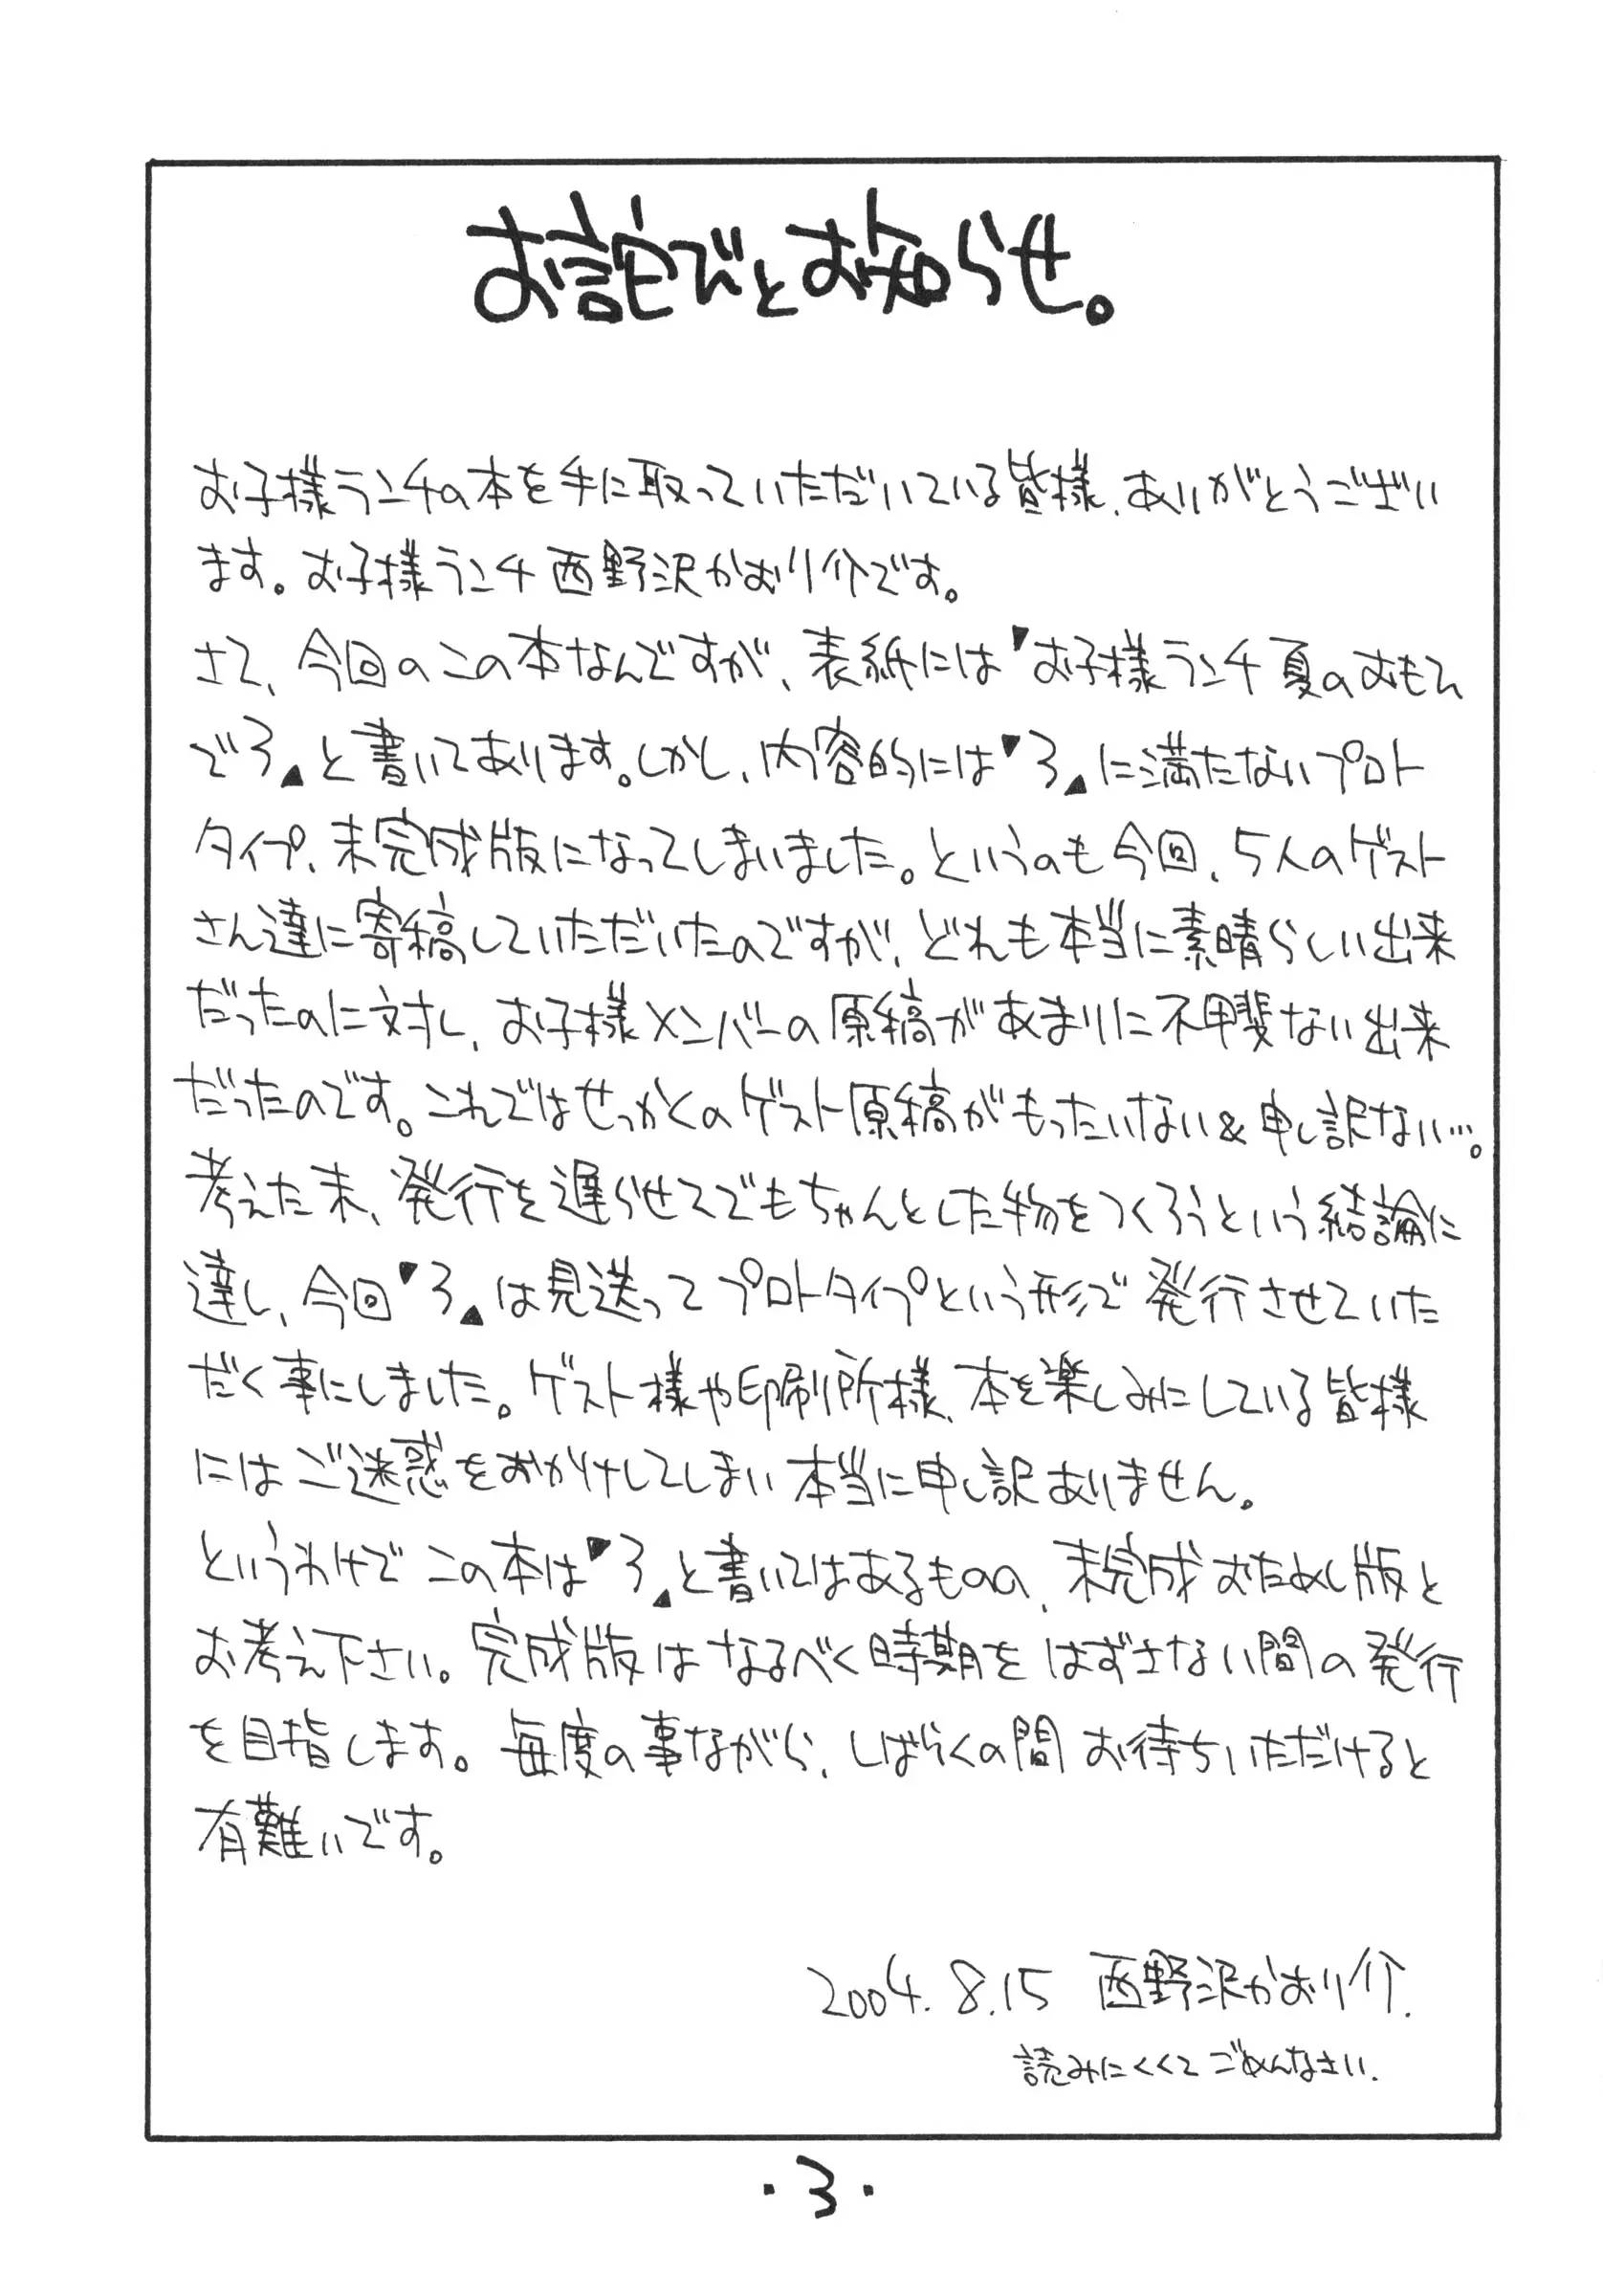 お詫びとお知らせ。
お子様ランチの本を手に取っていただいている皆様、ありがとうござい
ます。お子様ランチ西野沢かおり介です。
さて、今回のこの本なんですが、表紙には「お子様ランチ夏のおもひ
で3」と書いてあります。しかし、内容的には「3」に満たないプロト
タイプ、未完成版になってしまいました。というのも今回、5人のゲスト
さん達に寄稿していただいたのですが、どれも本当に素晴らしい出来
だったのに対し、お子様メンバーの原稿があまりに不甲斐ない出来
だったのです。これではせっかくのゲスト原稿がもったいない&申し訳ない…。
考えた末、発行を遅らせてでもちゃんとした物をつくろうという結論に
達し、今回「3」は見送ってプロトタイプという形で発行させていた
だく事にしました。ゲスト様や印刷所様、本を楽しみにしている皆様
にはご迷惑をおかけしてしまい本当に申し訳ありません。
というわけでこの本は「3」と書いてはあるものの、未完成おためし版と
お考え下さい。完成版はなるべく時期をはずさない間の発行
を目指します。毎度の事ながら、しばらくの間お待ちいただけると
有難いです。
2004.8.15 西野沢かおり介.
読みにくくてごめんなさい.
・3・